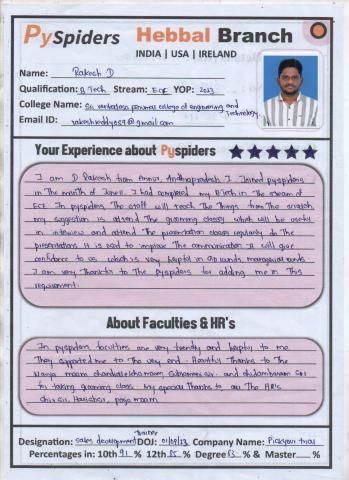 PySpiders Hebbal Branch
INDIA | USA | IRELAND
Name: Rakesh D
Qualification: B.Tech Stream: ECE YOP: 2023
College Name: Sri venkateswara perumal college of engineering and Technology
Email ID: @gmail.com
Your Experience about Pyspiders
I am D Rakesh from Andhrapradesh I Joined pyspiders
in The month of June. I had completed my B.tech in The stream of
ECE In pyspiders The staff will teach The Things from The scratch
my suggestion is attend The grooming classes which will be useful
in interview and attend The presentation classes regularly In The
presentations it is used to improve The communication it will give
confidence to us which is very helpful in GD rounds managerial rounds.
I am very Thankful to The pyspiders for adding me in This
requirement.
About Faculties & HR's
In pyspiders faculties are very friendly and helpful to me
They supported me to The very end. Thanks To The
maam Sir. and chidambaram Sir
for taking grooming class My special Thanks to all The HR's
sir, maam
Designation: sales development trainer DOJ: Company Name: Pickyour trail
Percentages in: 10th 91 % 12th 85 % Degree 63 % & Master %